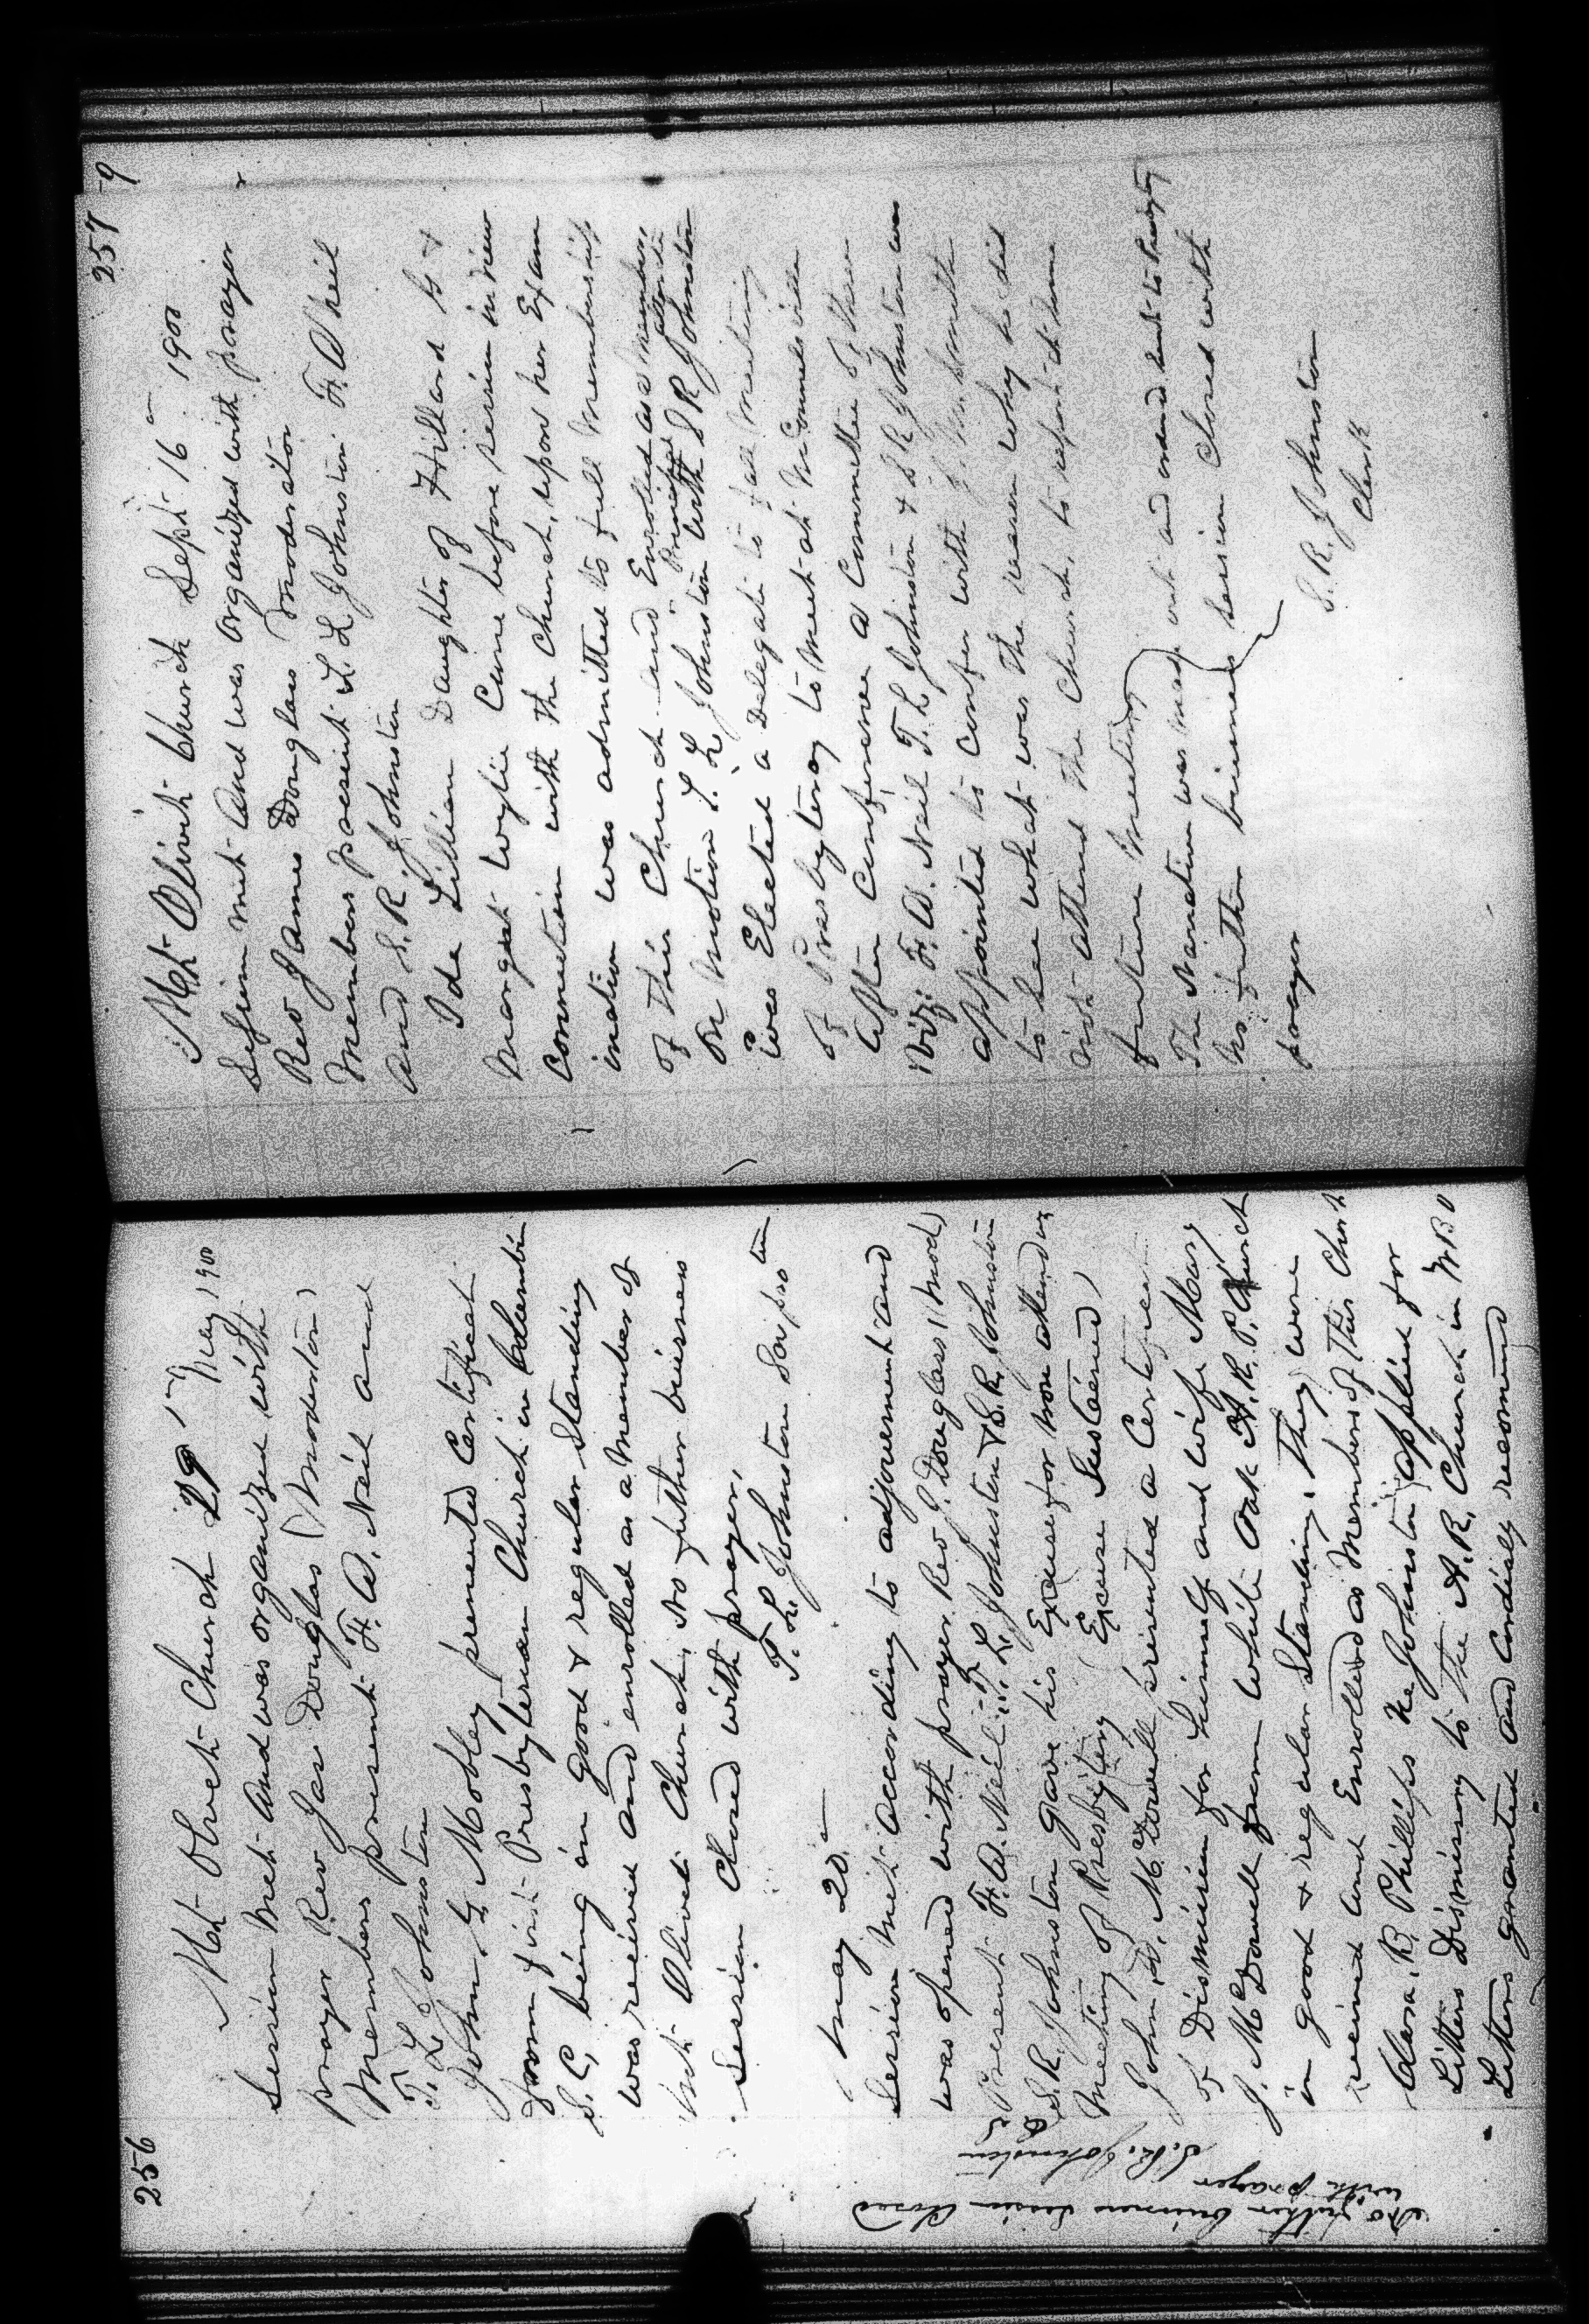 256
Mt Olivet Church 19 May 1900
Session Met And was organized with
prayer Rev Jas Douglas (Moderator)
Members present F. A. Neil and
T. L. Johnston
John G Mobley presented Certificate
from first Presbyterian Church in Columbia
S. C, being in good & regular standing
was received and enrolled as a member of
Mt Olivet Church, No futher buisness
Session Closed with prayer,
T. L. Johnston Ses pro tem
May 20
Session Met according to adjournment and
was opened with prayer Rev J. Douglass (Mod)
Present F. A. Neil, T. L. Johnston & S. R. Johnston
S. R. Johnston gave his Excuse for non attending
Meeting of Presbytery (Excuse Sustained)
John D. McDowell presented a Certificate
of Dismission for himself and wife Mary
J. McDowell from White Oak A. R. P. Church
in good & regular Standing, They were
received and Enrolled as Members of This Church
Clara B. Phillips Nee Johnston applied for
Letters Dismissory to The A. R. Church in
Letters granted and Cordialy recommend
No futher buisness Session Closed
with prayer
S. R. Johnston
257
Mt Olivit Church Sept 16 1900
Session Mit And was organized with prayer
Rev James Douglass Moderator
Members present T. L Johnston F. A Neil
and S. R. Johnston
Ida Lillian Daughter of Hillard G &
Margat Wylie Came before session in view
Connection with the Church, upon her Exam
ination was admitted to full Membership
of This Church and Enrolled as a member,
On Motion T. L Johnston Principal with S R Johnston alternate
was Elected a Delegate to fall Meeting
of Presbytery to Meet at McConnelsville
After Conference a Committee of three
viz: F. A. Neil T. L Johnston & S R Johnston was
appointed to Confer with J. M. Smith
to see what was The reason why he did
not attend The Church, to report at some
future Meeting
The Narrative was made out and ordered sent to Presbytery
No futher buisness session Closed with
prayer
S. R. Johnston
Clerk